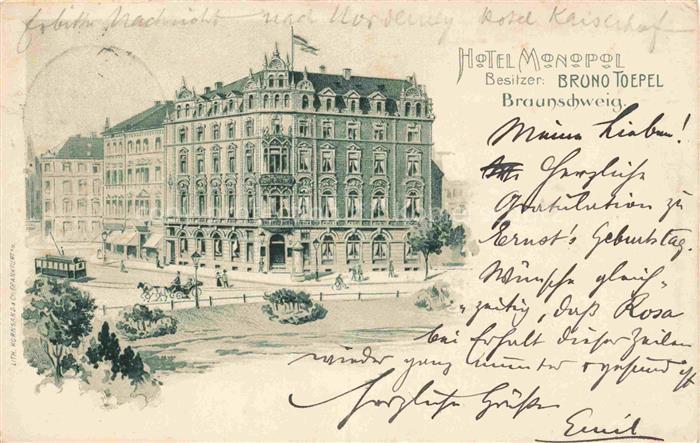 erbitte Nachricht nach Norderney Hotel Kaiserhof
HOTEL MONOPOL
Besitzer: BRUNO TOEPEL
Braunschweig.
Meine Lieben!
Herzliche
Gratulation zu
Ernst's Geburtstag.
Wünsche gleich-
zeitig, daß Rosa
bei Erhalt dieser Zeilen
wieder ganz munter & gesund ist
Herzliche Grüße
Emil